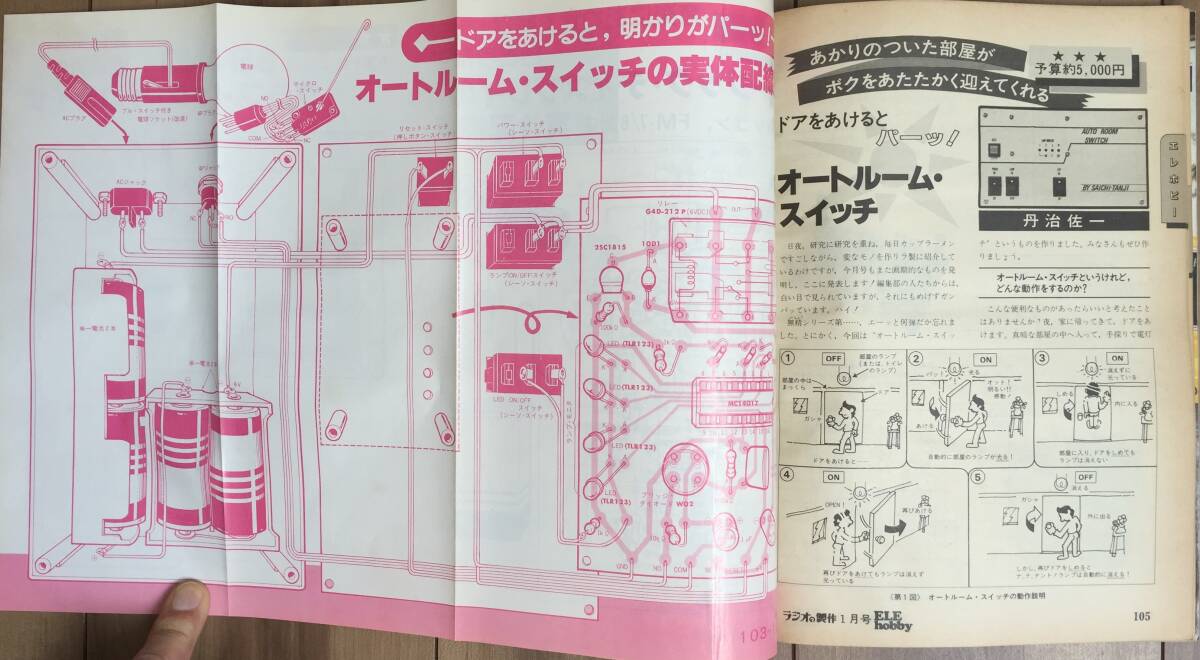 ドアをあけると，明かりがパーッ！
オートルーム・スイッチの実体配線
ACプラグ
プル・スイッチ付き
電球ソケット(改造)
電球
マイクロ・
スイッチ
NO
COM
NC
ACジャック
NC
NO
単一電池2本
単一電池2本
6V
リセット・スイッチ
(押しボタン・スイッチ)
パワー・スイッチ
(シーソ・スイッチ)
ランプON/OFFスイッチ
(シーソ・スイッチ)
LED ON/OFF
スイッチ
(シーソ・スイッチ)
ランプ・モニタ
リレー
G4D-212P(6VDC)
OUT
2SC1815
10D1
100kΩ
LED(TLR123)
LED(TLR123)
LED(TLR123)
LED
(TLR123)
MC14017
ブリッジ・
ダイオード W02
1kΩ
10kΩ
GND
NO
COM
NC
103
あかりのついた部屋が
ボクをあたたかく迎えてくれる
★ ★ ★
予算約5,000円
ドアをあけると
パーッ！
オートルーム・
スイッチ
AUTO ROOM
SWITCH
BY SAICHI-TANJI
丹治佐一
エレホビー
日夜，研究に研究を重ね，毎日カップラーメン
ですごしながら，変なモノを作りラ製に紹介して
いるわけですが，今月号もまた画期的なものを発
明し，ここに発表します！編集部の人たちからは，
白い目で見られていますが，それにもめげずガン
バッています。ハイ！
無精シリーズ第……，エーッと何弾だか忘れま
した。とにかく，今回は“オートルーム・スイッ
チ”というものを作りました。みなさんもぜひ作
りましょう。
オートルーム・スイッチというけれど，
どんな動作をするのか？
こんな便利なものがあったらいいと考えたこと
はありませんか？夜，家に帰ってきて，ドアをあ
けます。真暗な部屋の中へ入って，手探りで電灯
① OFF
部屋のランプ
(または，トイレ
のランプ)
部屋の中は
まっくら
ドアー
ガシャ
ドアをあけると――
② ON
パッ！
光る
オット！
明るい!!
感動！
あける
自動的に部屋のランプが光る！
③ ON
消えずに
光っている
しめる
内に入る
部屋に入り，ドアをしめても
ランプは消えない
④ ON
OPEN！
再びあける
再びドアをあけてもランプは消えず
光っている
⑤ OFF
消える
ガシャ
外に出る
しかし，再びドアをしめると
ナ，ナ，ナント！ランプは自動的に消える！
〈第1図〉 オートルーム・スイッチの動作説明
ラジオの製作1月号 ELE hobby
105